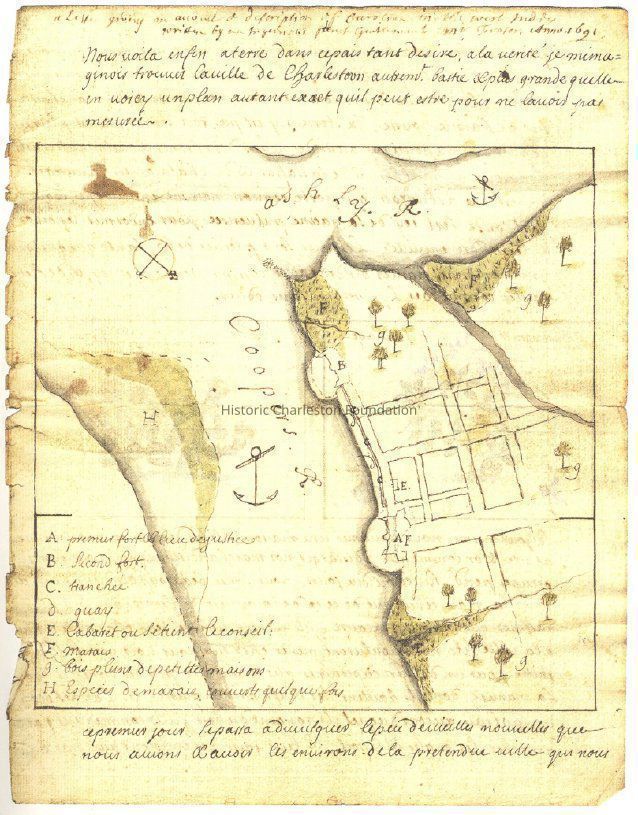 a Letter giving an account & description of Carolina in the west Indies
written by
Nous voila enfin a terre dans ce pais tant desiré, a la verité je m'ima-
ginois trouver la ville de Charlestown autremt. bastie & plus grande quelle
en voicy un plan autant exact quil peut estre pour ne lavoir pas
mesurée.
ashly. R.
F
g
F
g
Coopers. R.
B
H
Historic Charleston Foundation
E.
g
A F
A. premier fort & lieu de justice
B. Second fort.
C. tranchée
d. quay
E. Cabaret ou se tient le conseil.
F. marais
g. bois pleins de petittes maisons
H. Especes de marais, couverts quelque fois
g
g
ce premier jour se passa a divulguer le peu de vieilles nouvelles que
nous avions & a voir les environs de la pretendue ville qui nous